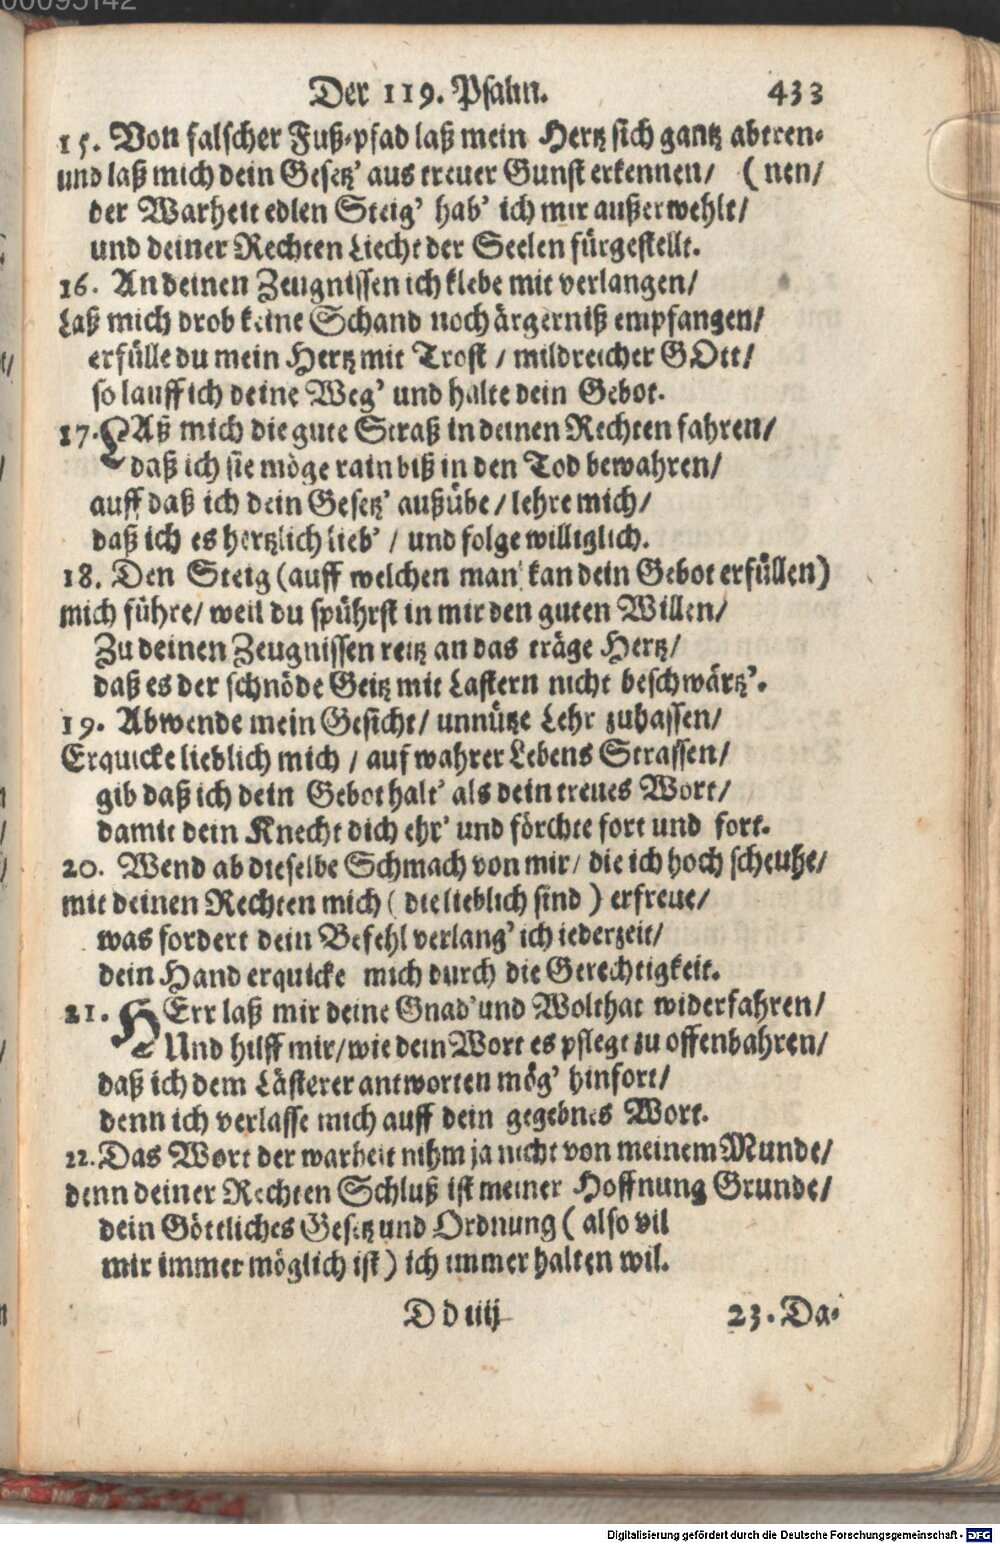 Der 119. Psalm. 433
15. Von falscher Fuß-pfad laß mein Hertz sich gantz abtren-
und laß mich dein Gesetz' aus treuer Gunst erkennen/ (nen/
der Warheit edlen Steig' hab' ich mir außerwehlt/
und deiner Rechten Liecht der Seelen fürgestellt.
16. An deinen Zeugnissen ich klebe mit verlangen/
Laß mich drob keine Schand noch ärgerniß empfangen/
erfülle du mein Hertz mit Trost / mildreicher GOtt/
so lauff ich deine Weg' und halte dein Gebot.
17. LAß mich die gute Straß in deinen Rechten fahren/
daß ich sie möge rain biß in den Tod bewahren/
auff daß ich dein Gesetz' außübe / lehre mich/
daß ich es hertzlich lieb' / und folge williglich.
18. Den Steig (auff welchen man kan dein Gebot erfüllen)
mich führe/ weil du spührst in mir den guten Willen/
Zu deinen Zeugnissen reitz an das träge Hertz/
daß es der schnöde Geitz mit Lastern nicht beschwärtz'.
19. Abwende mein Gesicht/ unnütze Lehr zuhassen/
Erquicke lieblich mich / auf wahrer Lebens Strassen/
gib daß ich dein Gebot halt' als dein treues Wort/
damit dein Knecht dich ehr' und förchte fort und fort.
20. Wend ab dieselbe Schmach von mir/ die ich hoch scheuhe/
mit deinen Rechten mich ( die lieblich sind ) erfreue/
was fordert dein Befehl verlang' ich iederzeit/
dein Hand erquicke mich durch die Gerechtigkeit.
21. HErr laß mir deine Gnad' und Wolthat widerfahren/
Und hilff mir/ wie dein Wort es pflegt zu offenbahren/
daß ich dem Lästerer antworten mög' hinfort/
denn ich verlasse mich auff dein gegebnes Wort.
22. Das Wort der warheit nihm ja nicht von meinem Munde/
denn deiner Rechten Schluß ist meiner Hoffnung Grunde/
dein Göttliches Gesetz und Ordnung ( also vil
mir immer möglich ist ) ich immer halten wil.
D d iiij 23. Da-
Digitalisierung gefördert durch die Deutsche Forschungsgemeinschaft - DFG